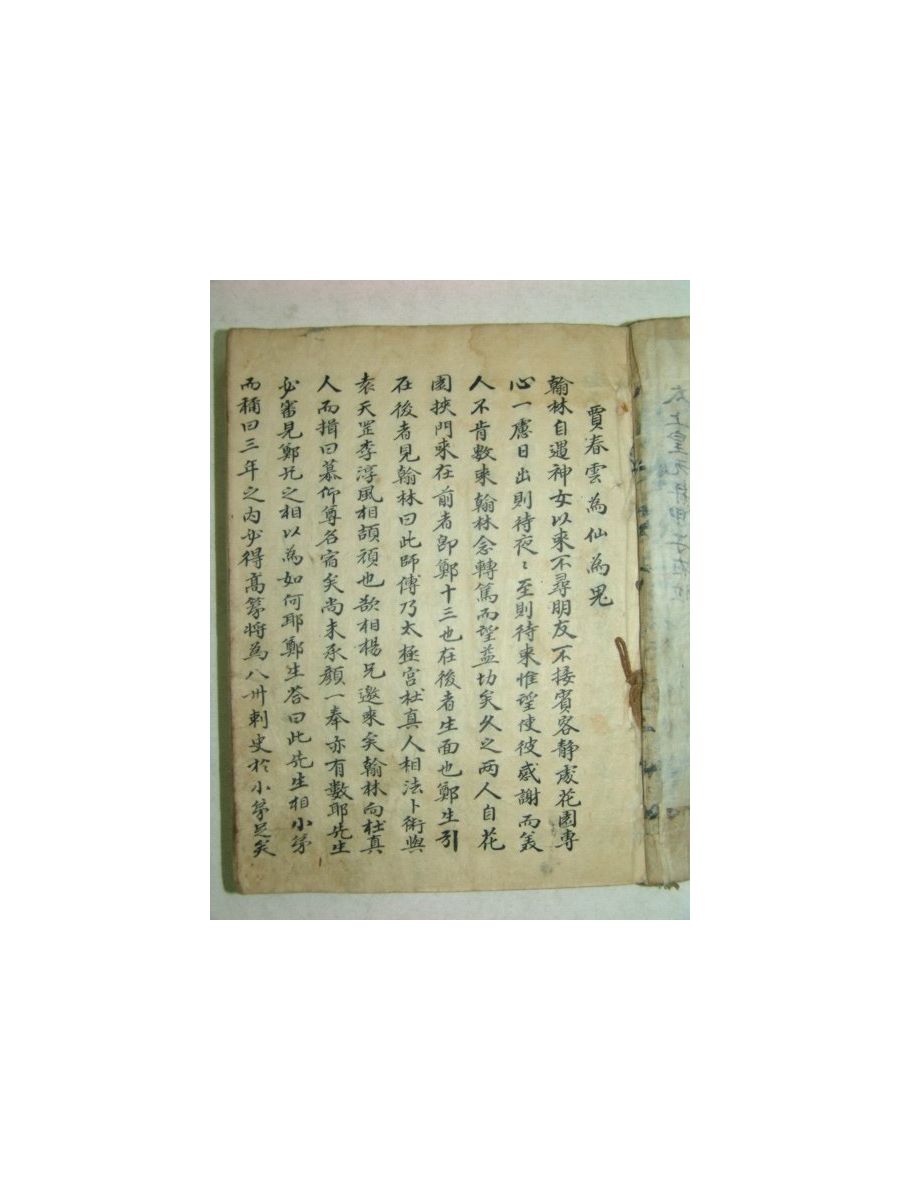 賈春雲為仙為鬼
翰林自遇神女以来不尋朋友不接賓客静處花園專
心一慮日出則待夜〻至則待来惟望使彼感謝而美
人不肯數来翰林念轉篤而望益切矣久之两人自花
園挾門来在前者即鄭十三也在後者生面也鄭生引
在後者見翰林曰此師傅乃太極宫杜真人相法卜術與
袁天罡李淳風相頡頏也欲相楊兄邀来矣翰林向杜真
人而揖曰慕仰尊名宿矣尚未承顔一奉亦有數耶先生
必審見鄭兄之相以為如何耶鄭生答曰此先生相小弟
而稱曰三年之内必得高第将為八州刺史於小弟足矣
太上皇